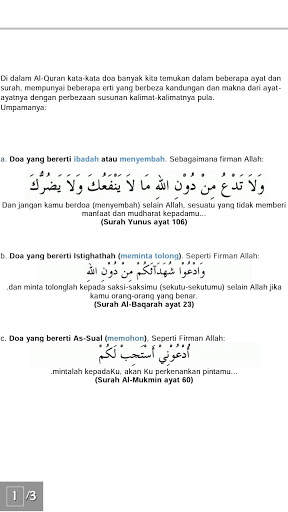 Di dalam Al-Quran kata-kata doa banyak kita temukan dalam beberapa ayat dan
surah, mempunyai beberapa erti yang berbeza kandungan dan makna dari ayat-
ayatnya dengan perbezaan susunan kalimat-kalimatnya pula.
Umpamanya:
a. Doa yang bererti ibadah atau menyembah. Sebagaimana firman Allah:
وَلاَ تَدْعُ مِنْ دُوْنِ اللهِ مَا لاَ يَنْفَعُكَ وَلاَ يَضُرُّكَ
Dan jangan kamu berdoa (menyembah) selain Allah, sesuatu yang tidak memberi
manfaat dan mudharat kepadamu...
(Surah Yunus ayat 106)
b. Doa yang bererti Istighathah (meminta tolong). Seperti Firman Allah:
وَادْعُوْا شُهَدَآئَكُمْ مِنْ دُوْنِ اللهِ
.dan minta tolonglah kepada saksi-saksimu (sekutu-sekutumu) selain Allah jika
kamu orang-orang yang benar.
(Surah Al-Baqarah ayat 23)
c. Doa yang bererti As-Sual (memohon), Seperti Firman Allah:
اُدْعُوْنِيْ اَسْتَجِبْ لَكُمْ
.mintalah kepadaKu, akan Ku perkenankan pintamu...
(Surah Al-Mukmin ayat 60)
1 /3